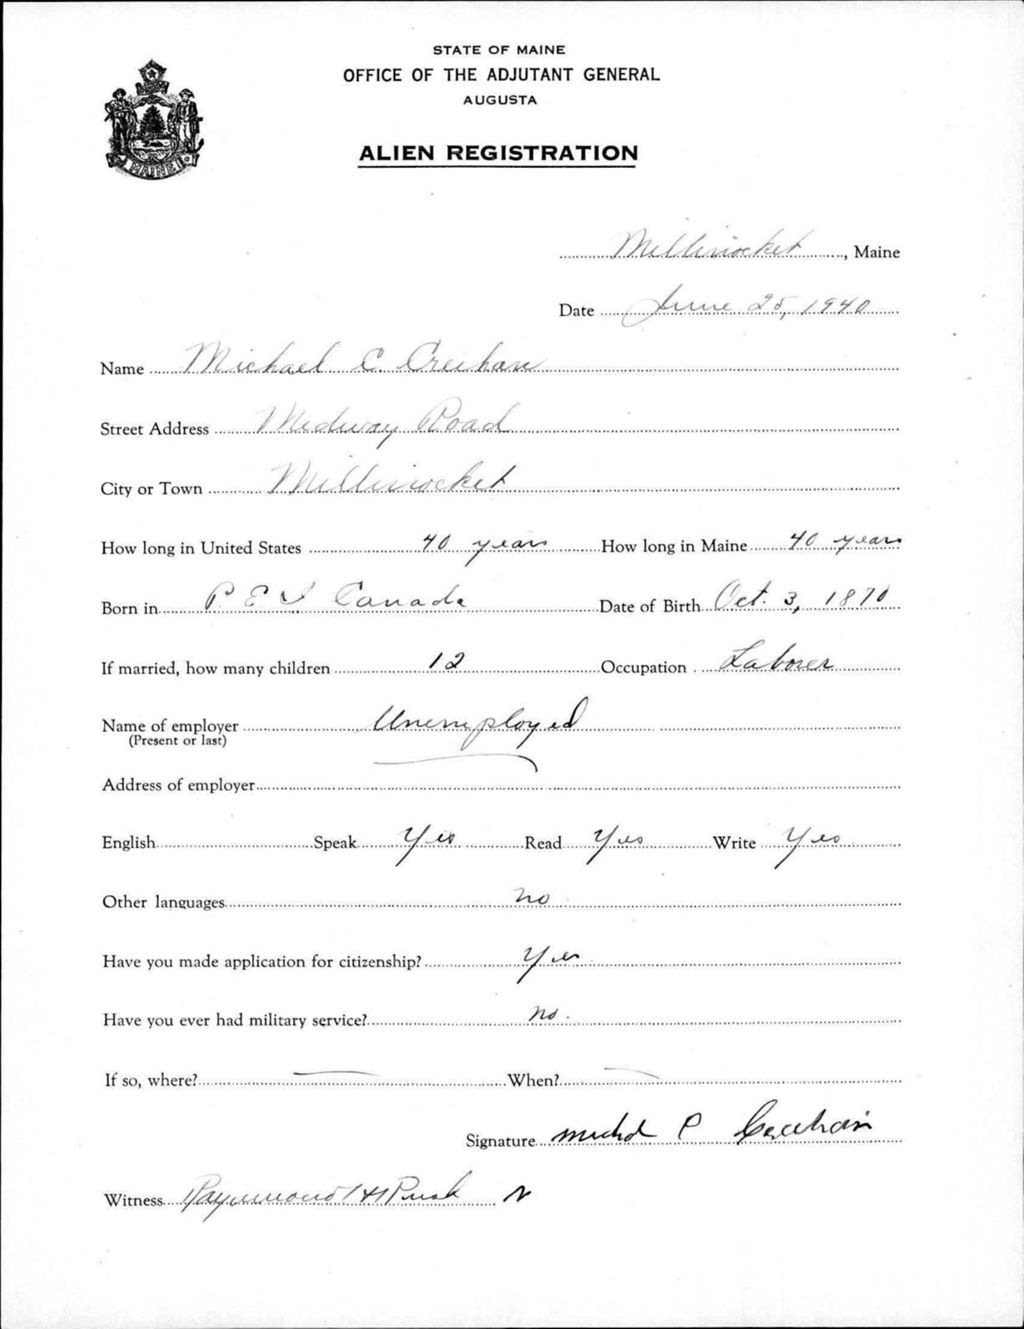 STATE OF MAINE
OFFICE OF THE ADJUTANT GENERAL
AUGUSTA
ALIEN REGISTRATION
MAINE
Millinocket, Maine
Date June 25, 1940
Name Michael C. Creehan
Street Address Medway Road
City or Town Millinocket
How long in United States 40 years How long in Maine 40 years
Born in P E I Canada Date of Birth Oct. 3, 1870
If married, how many children 12 Occupation Laborer
Name of employer Unemployed
(Present or last)
Address of employer
English Speak Yes Read Yes Write Yes
Other languages no
Have you made application for citizenship? Yes
Have you ever had military service? no.
If so, where? When?
Signature
Witness Raymond H